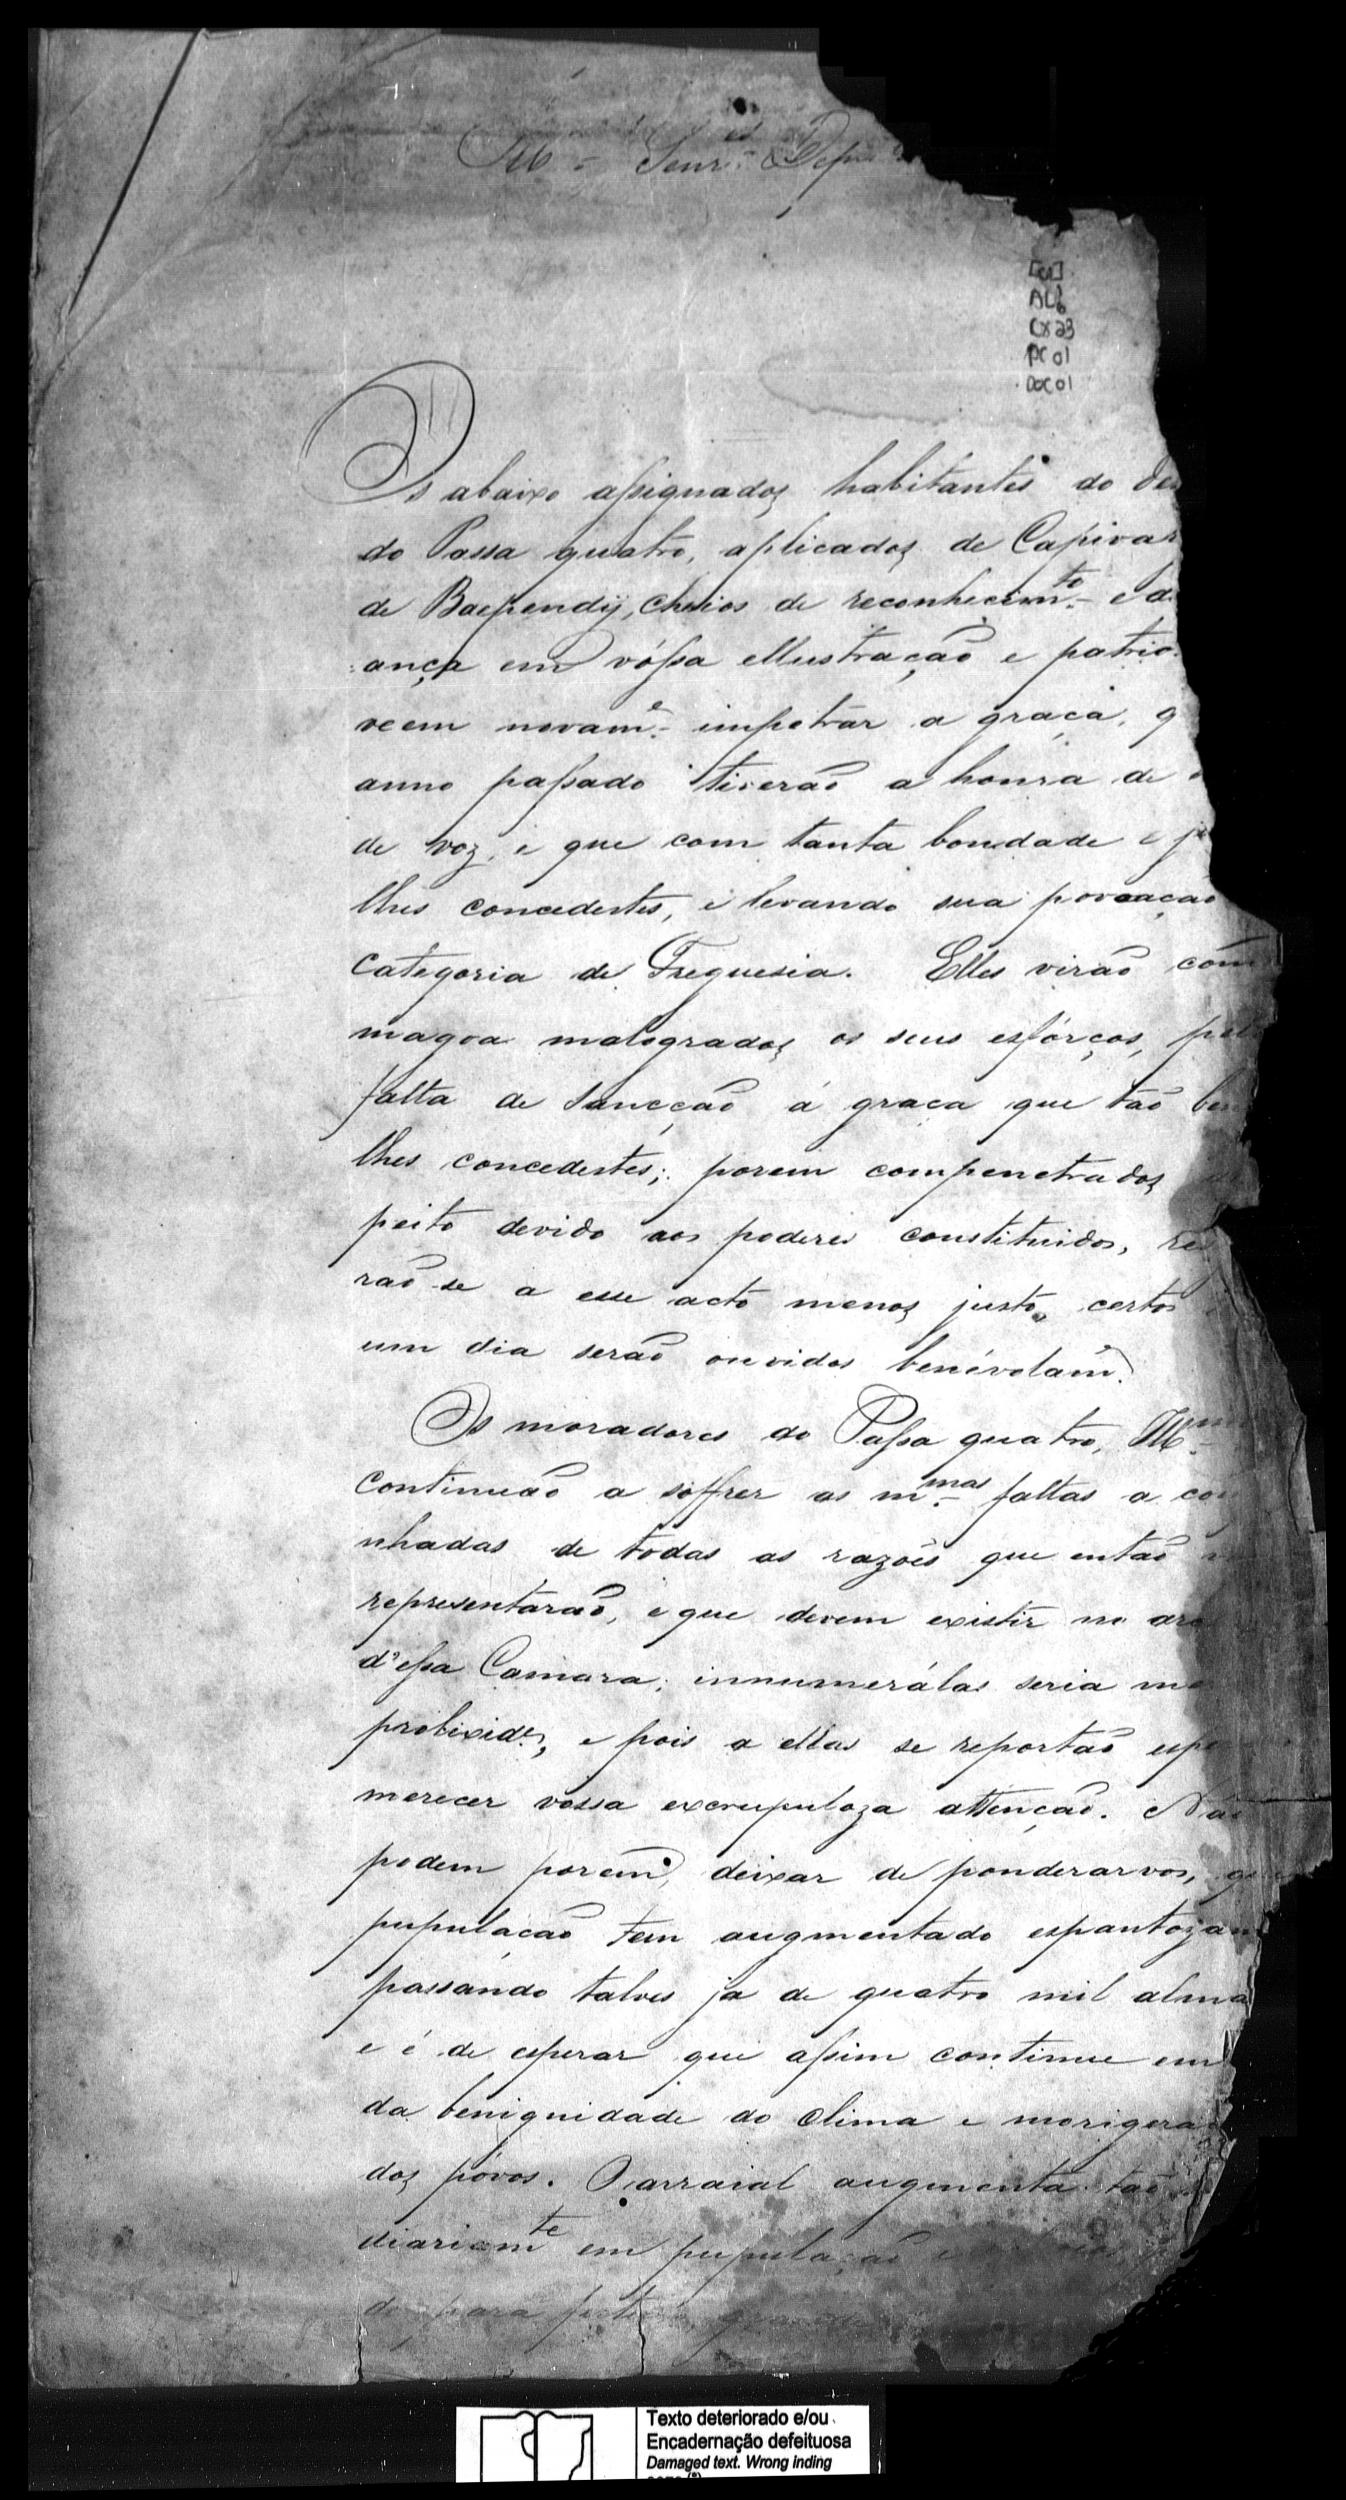 Ill.mos Senr.es Depu
[CO]
AL6
CX 23
PC 01
DOC 01
Os abaixo assignados habitantes do
do Passa quatro, aplicados de Capivar
de Baependÿ, cheios de reconhecim.to e d
ança em vóssa ellustração e patrio
veem novam.e impetrar a graça, q
anno passado tiverão a honra de
de voz, e que com tanta bondade e j
lhes concedestes, elevando sua povoação
categoria de Freguesia. Elles virão com
magoa malogrados os seus esfórços, pel
falta de sancção á graça que tão ben
lhes concedestes; porem compenetrados
peito devido aos poderes constituidos, res
rão se a esse acto menos justo, certos
um dia serão ouvidos benévolam.e
Os moradores do Passa quatro, Ill.m
continuão a soffrer as m.mas faltas a co
nhadas de todas as razões que então
representarão, e que devem existir no arc
d'essa Camara; innumerálas seria
prolixid.e, e pois a ellas se reportão espe
merecer vossa excrupuloza attenção. Não
podem porem, deixar de ponderarvos, q
pupulação tem augmentado espantozam
passando talves ja de quatro mil alma
e é de esperar que assim continue em
da benignidade do clima e morigera
dos póvos. O arraial augmenta tão
diariam.te em pupulação e
do para
Texto deteriorado e/ou
Encadernação defeituosa
Damaged text. Wrong inding